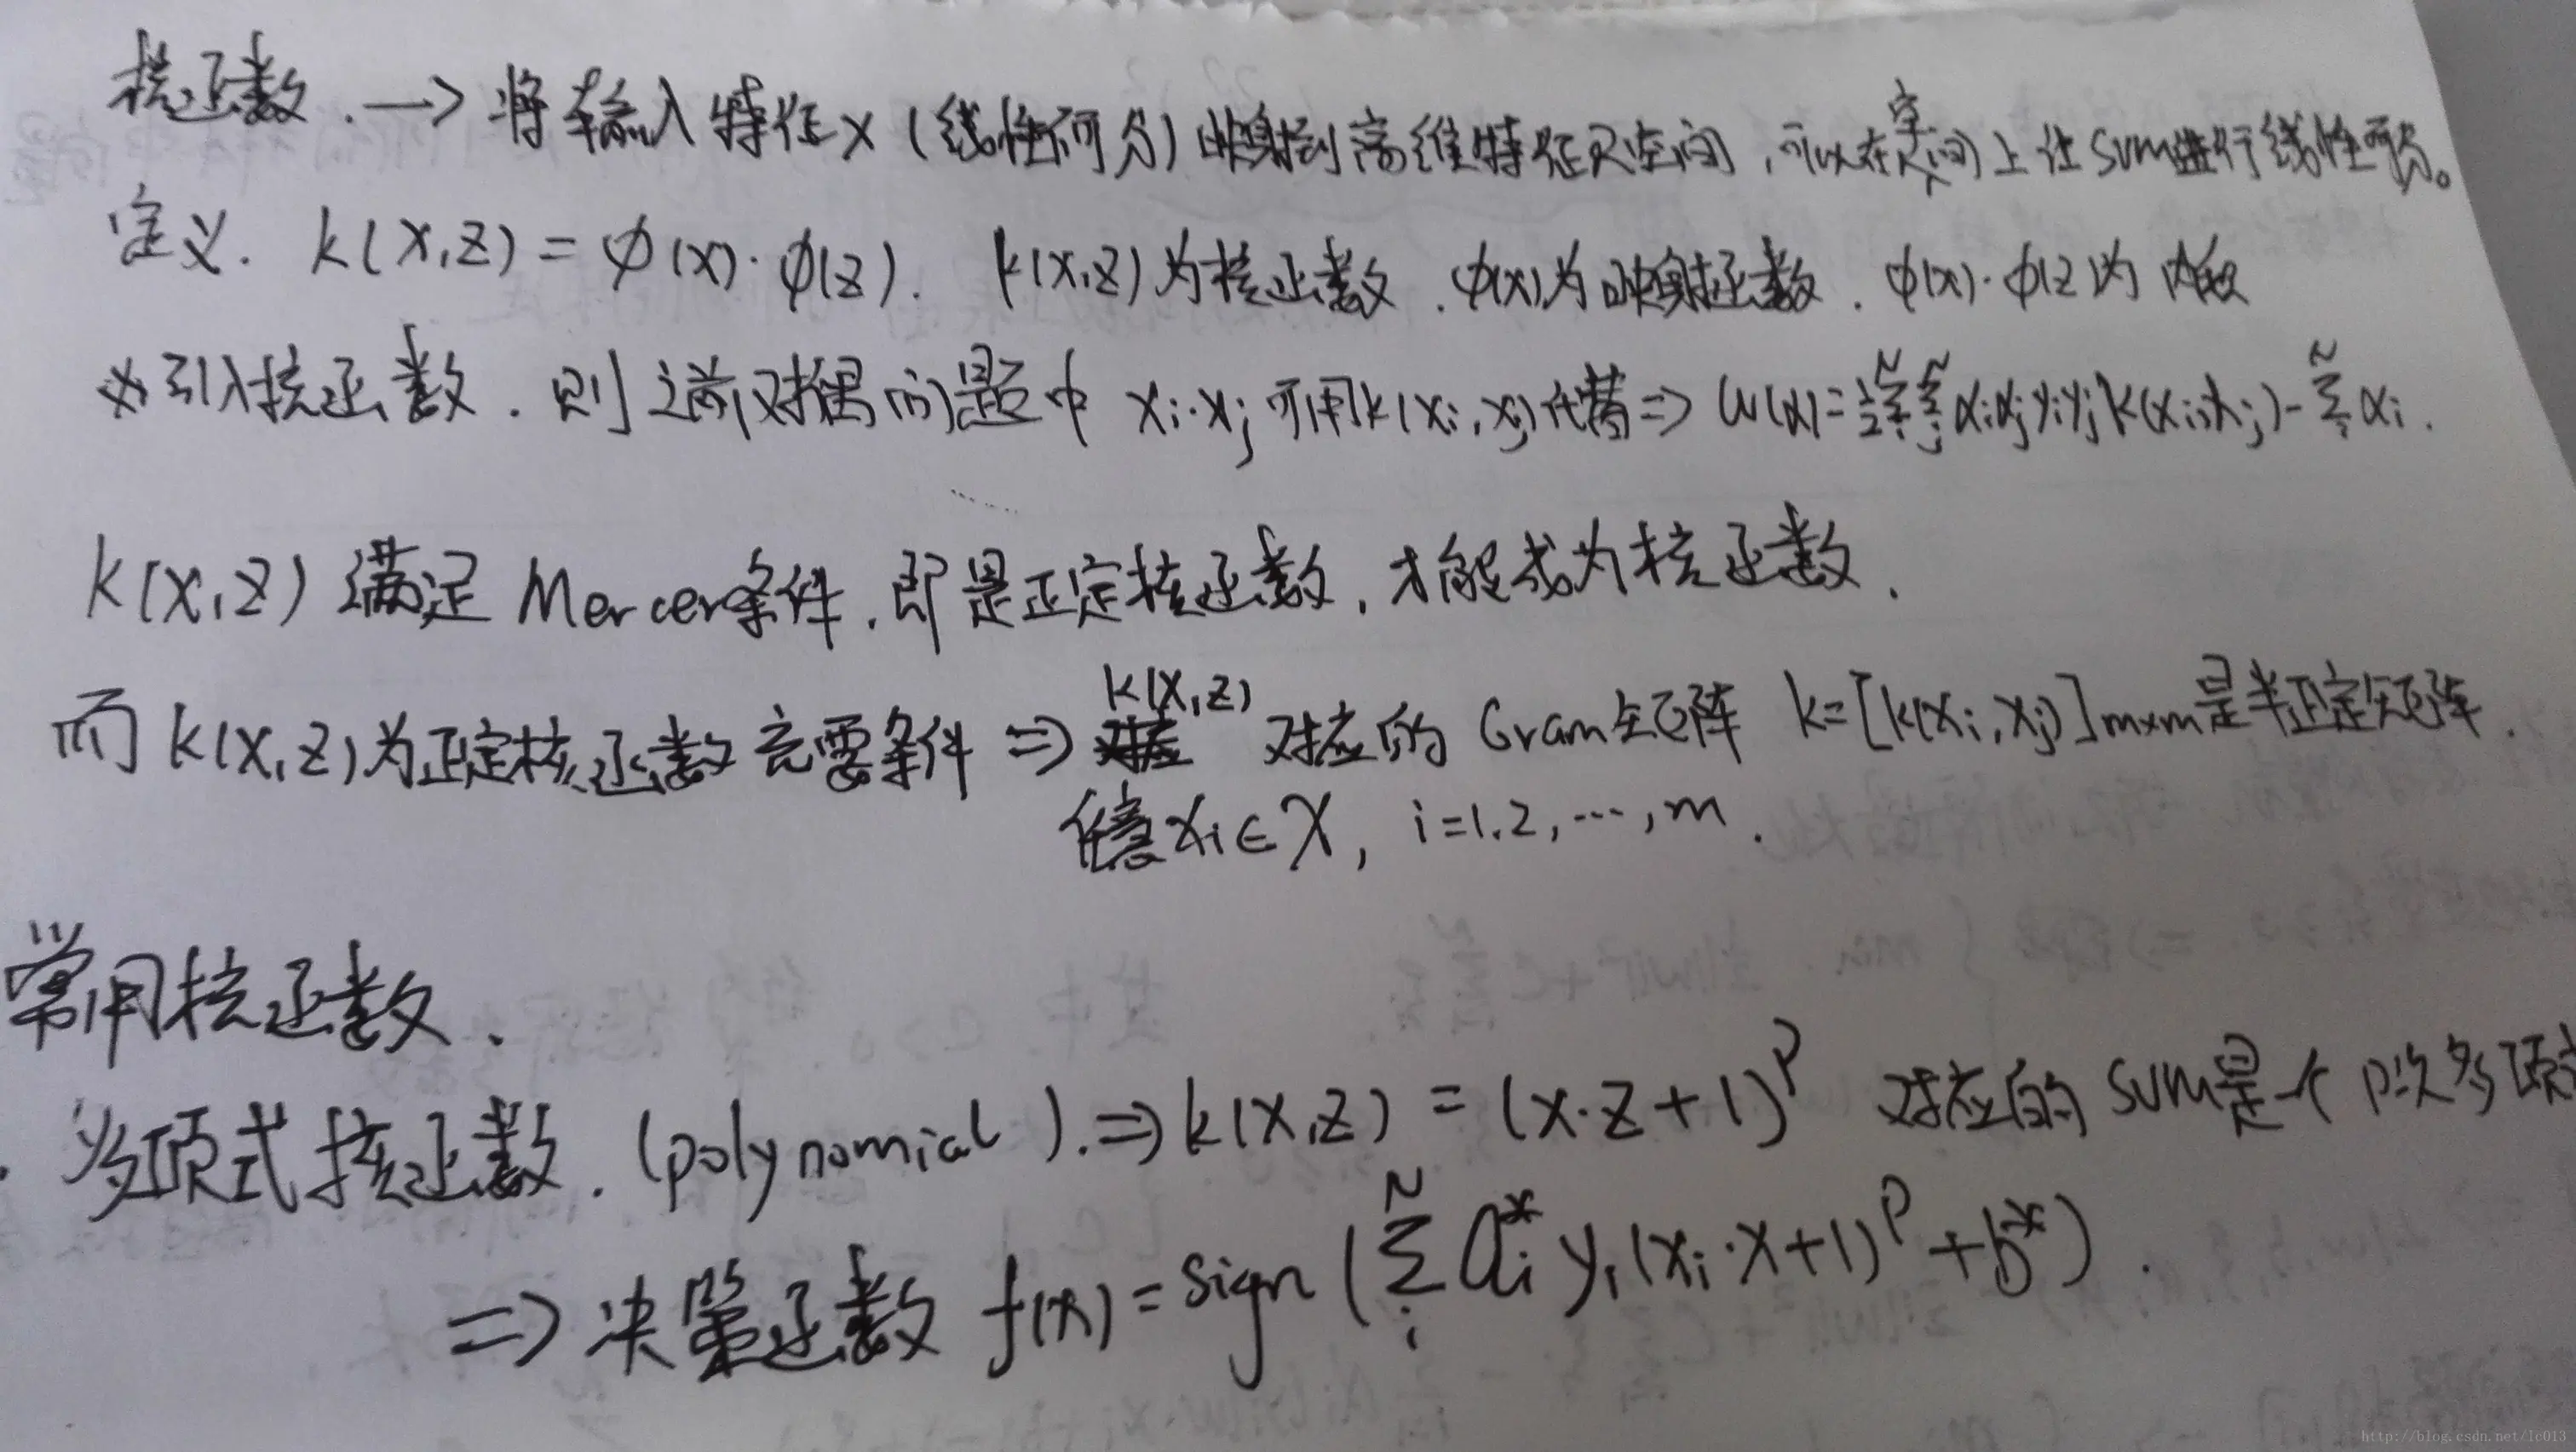 核函数. → 将输入特征x (线性可分) 映射到高维特征R空间, 可以在R空间上让SVM进行线性可分。
定义. k(x,z) = φ(x)·φ(z). k(x,z)为核函数. φ(x)为映射函数. φ(x)·φ(z)为内积
※引入核函数. 则之前对偶问题中 xi·xj 可用k(xi,xj)代替 ⇒ W(α)=½∑ᵢᴺ∑ⱼᴺ αiαjyiyjK(xi,xj)-∑ᵢᴺαi.
k(x,z) 满足 Mercer条件. 即是正定核函数, 才能成为核函数.
而k(x,z)为正定核函数充要条件 ⇒ k(x,z) 对应的Gram矩阵 k=[k(xi,xj)]m×m是半正定矩阵.
任意xi∈X, i=1.2,…,m.
常用核函数.
多项式核函数. (polynomial). ⇒ k(x,z) = (x·z+1)ᴾ 对应的SVM是一个P次多项
⇒ 决策函数 f(x) = sign(∑ᵢᴺ ai* yi(xi·x+1)ᴾ+b*).
http://blog.csdn.net/lc013